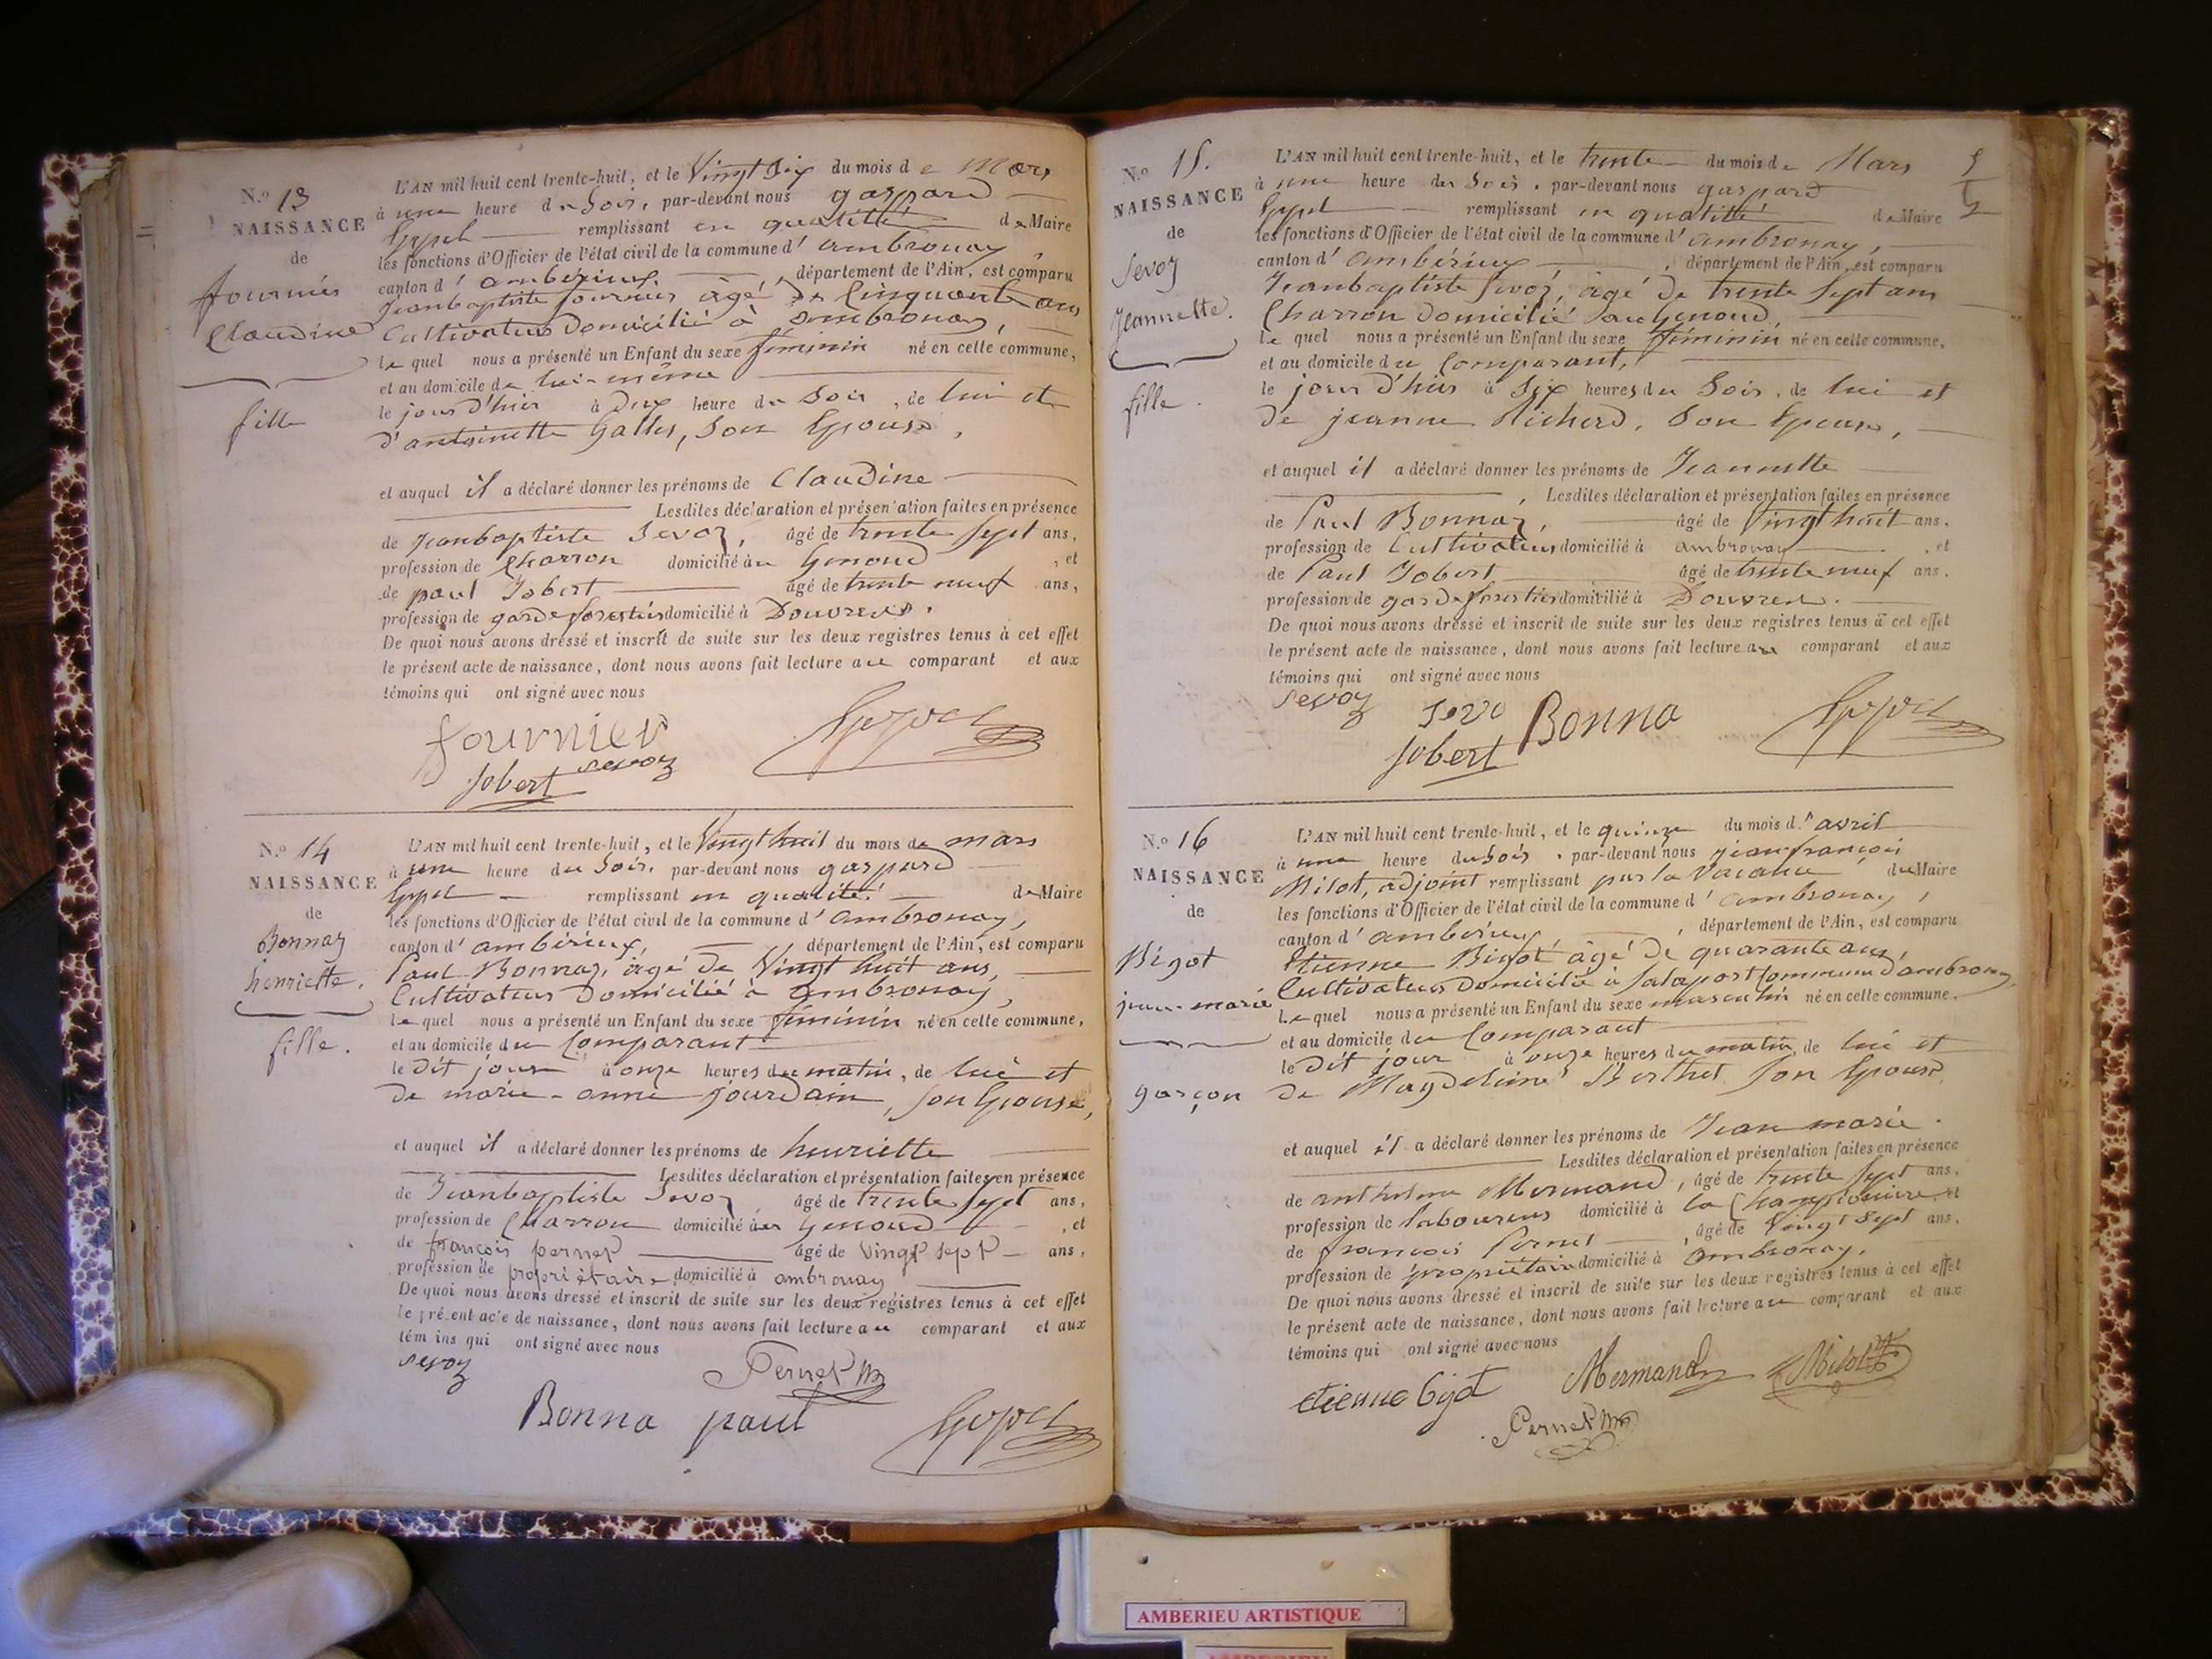 N.o 13
NAISSANCE
de
fournier
Claudine
fille
L'AN mil huit cent trente-huit, et le Vingt Six du mois de Mars
à une heure du Soir, par-devant nous gaspard
remplissant en qualitté de Maire
les fonctions d'Officier de l'état civil de la commune d'ambronay,
canton d'ambérieux, département de l'Ain, est comparu
Jeanbaptiste fournier âgé de Cinquante ans
Cultivateur Domicilié à ambronay,
le quel nous a présenté un Enfant du sexe féminin né en cette commune,
et au domicile de lui-même
le jour d'hier à heure du Soir, de lui et
d'antoinette Gallet, Son Epouse,
et auquel il a déclaré donner les prénoms de Claudine
Lesdites déclaration et présentation faites en présence
de Jeanbaptiste Sevoz, âgé de trente Sept ans,
profession de Charron domicilié au Genoud, et
de paul Jobert âgé de trente neuf ans,
profession de garde forestier domicilié à Douvres.
De quoi nous avons dressé et inscrit de suite sur les deux registres tenus à cet effet
le présent acte de naissance, dont nous avons fait lecture au comparant et aux
témoins qui ont signé avec nous
fournier
Jobert sevoz
N.o 14
NAISSANCE
de
Bonnaz
henriette.
fille.
L'AN mil huit cent trente-huit, et le Vingt huit du mois de mars
à une heure du Soir, par-devant nous gaspard
remplissant en qualité de Maire
les fonctions d'Officier de l'état civil de la commune d'ambronay,
canton d'ambérieux, département de l'Ain, est comparu
Paul Bonnaz, âgé de Vingt huit ans,
Cultivateur Domicilié à ambronay,
le quel nous a présenté un Enfant du sexe féminin né en cette commune,
et au domicile du Comparant
le Dit jour à onze heures du matin, de lui et
de marie-anne jourdain, Son Epouse,
et auquel il a déclaré donner les prénoms de henriette
Lesdites déclaration et présentation faites en présence
de Jeanbaptiste Sevoz âgé de trente Sept ans,
profession de Charron domicilié au Genoud, et
de françois pernet âgé de vingt sept ans,
profession de propriétaire domicilié à ambronay
De quoi nous avons dressé et inscrit de suite sur les deux registres tenus à cet effet
le présent acte de naissance, dont nous avons fait lecture au comparant et aux
témoins qui ont signé avec nous
sevoz Pernet
Bonna paul
N.o 15.
NAISSANCE
de
Sevoz
Jeannette.
fille.
L'AN mil huit cent trente-huit, et le trente du mois de Mars
à une heure du Soir, par-devant nous gaspard
remplissant en qualitté de Maire
les fonctions d'Officier de l'état civil de la commune d'ambronay,
canton d'ambérieux, département de l'Ain, est comparu
Jeanbaptiste Sevoz, âgé de trente Sept ans
Charron Domicilié au Genoud,
le quel nous a présenté un Enfant du sexe féminin né en cette commune,
et au domicile du Comparant,
le jour d'hier à Six heures du Soir, de lui et
de jeanne Richerd, Son Epouse,
et auquel il a déclaré donner les prénoms de Jeannette
Lesdites déclaration et présentation faites en présence
de Paul Bonnaz, âgé de Vingt huit ans,
profession de Cultivateur domicilié à ambronay, et
de Paul Jobert âgé de trente neuf ans,
profession de garde forestier domicilié à Douvres.
De quoi nous avons dressé et inscrit de suite sur les deux registres tenus à cet effet
le présent acte de naissance, dont nous avons fait lecture au comparant et aux
témoins qui ont signé avec nous
sevoz Sevo Bonna
Jobert
N.o 16
NAISSANCE
de
Bigot
jean-marie
garçon
L'AN mil huit cent trente-huit, et le quinze du mois d'avril
à une heure du Soir, par-devant nous jean françois
Milot, adjoint remplissant par la Vacance du Maire
les fonctions d'Officier de l'état civil de la commune d'ambronay,
canton d'ambérieux, département de l'Ain, est comparu
Etienne Bigot âgé de quarante ans,
Cultivateur Domicilié à Salaport Commune d'ambronay
Le quel nous a présenté un Enfant du sexe masculin né en cette commune,
et au domicile du Comparant
le Dit jour à onze heures du matin, de lui et
de Magdeleine Berthet Son Epouse
et auquel il a déclaré donner les prénoms de Jean marie.
Lesdites déclaration et présentation faites en présence
de anthelme Mermand, âgé de trente Sept ans,
profession de laboureur domicilié à la Championnière, et
de françois Pernet, âgé de Vingt Sept ans,
profession de propriétaire domicilié à ambronay.
De quoi nous avons dressé et inscrit de suite sur les deux registres tenus à cet effet
le présent acte de naissance, dont nous avons fait lecture au comparant et aux
témoins qui ont signé avec nous
etienne bigot Mermand Milot
Pernet
AMBERIEU ARTISTIQUE